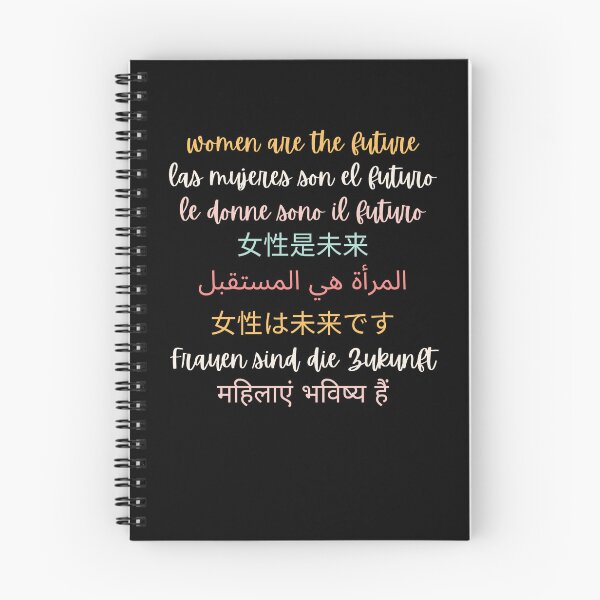 women are the future
las mujeres son el futuro
le donne sono il futuro
女性是未来
المرأة هي المستقبل
女性は未来です
Frauen sind die Zukunft
महिलाएं भविष्य हैं